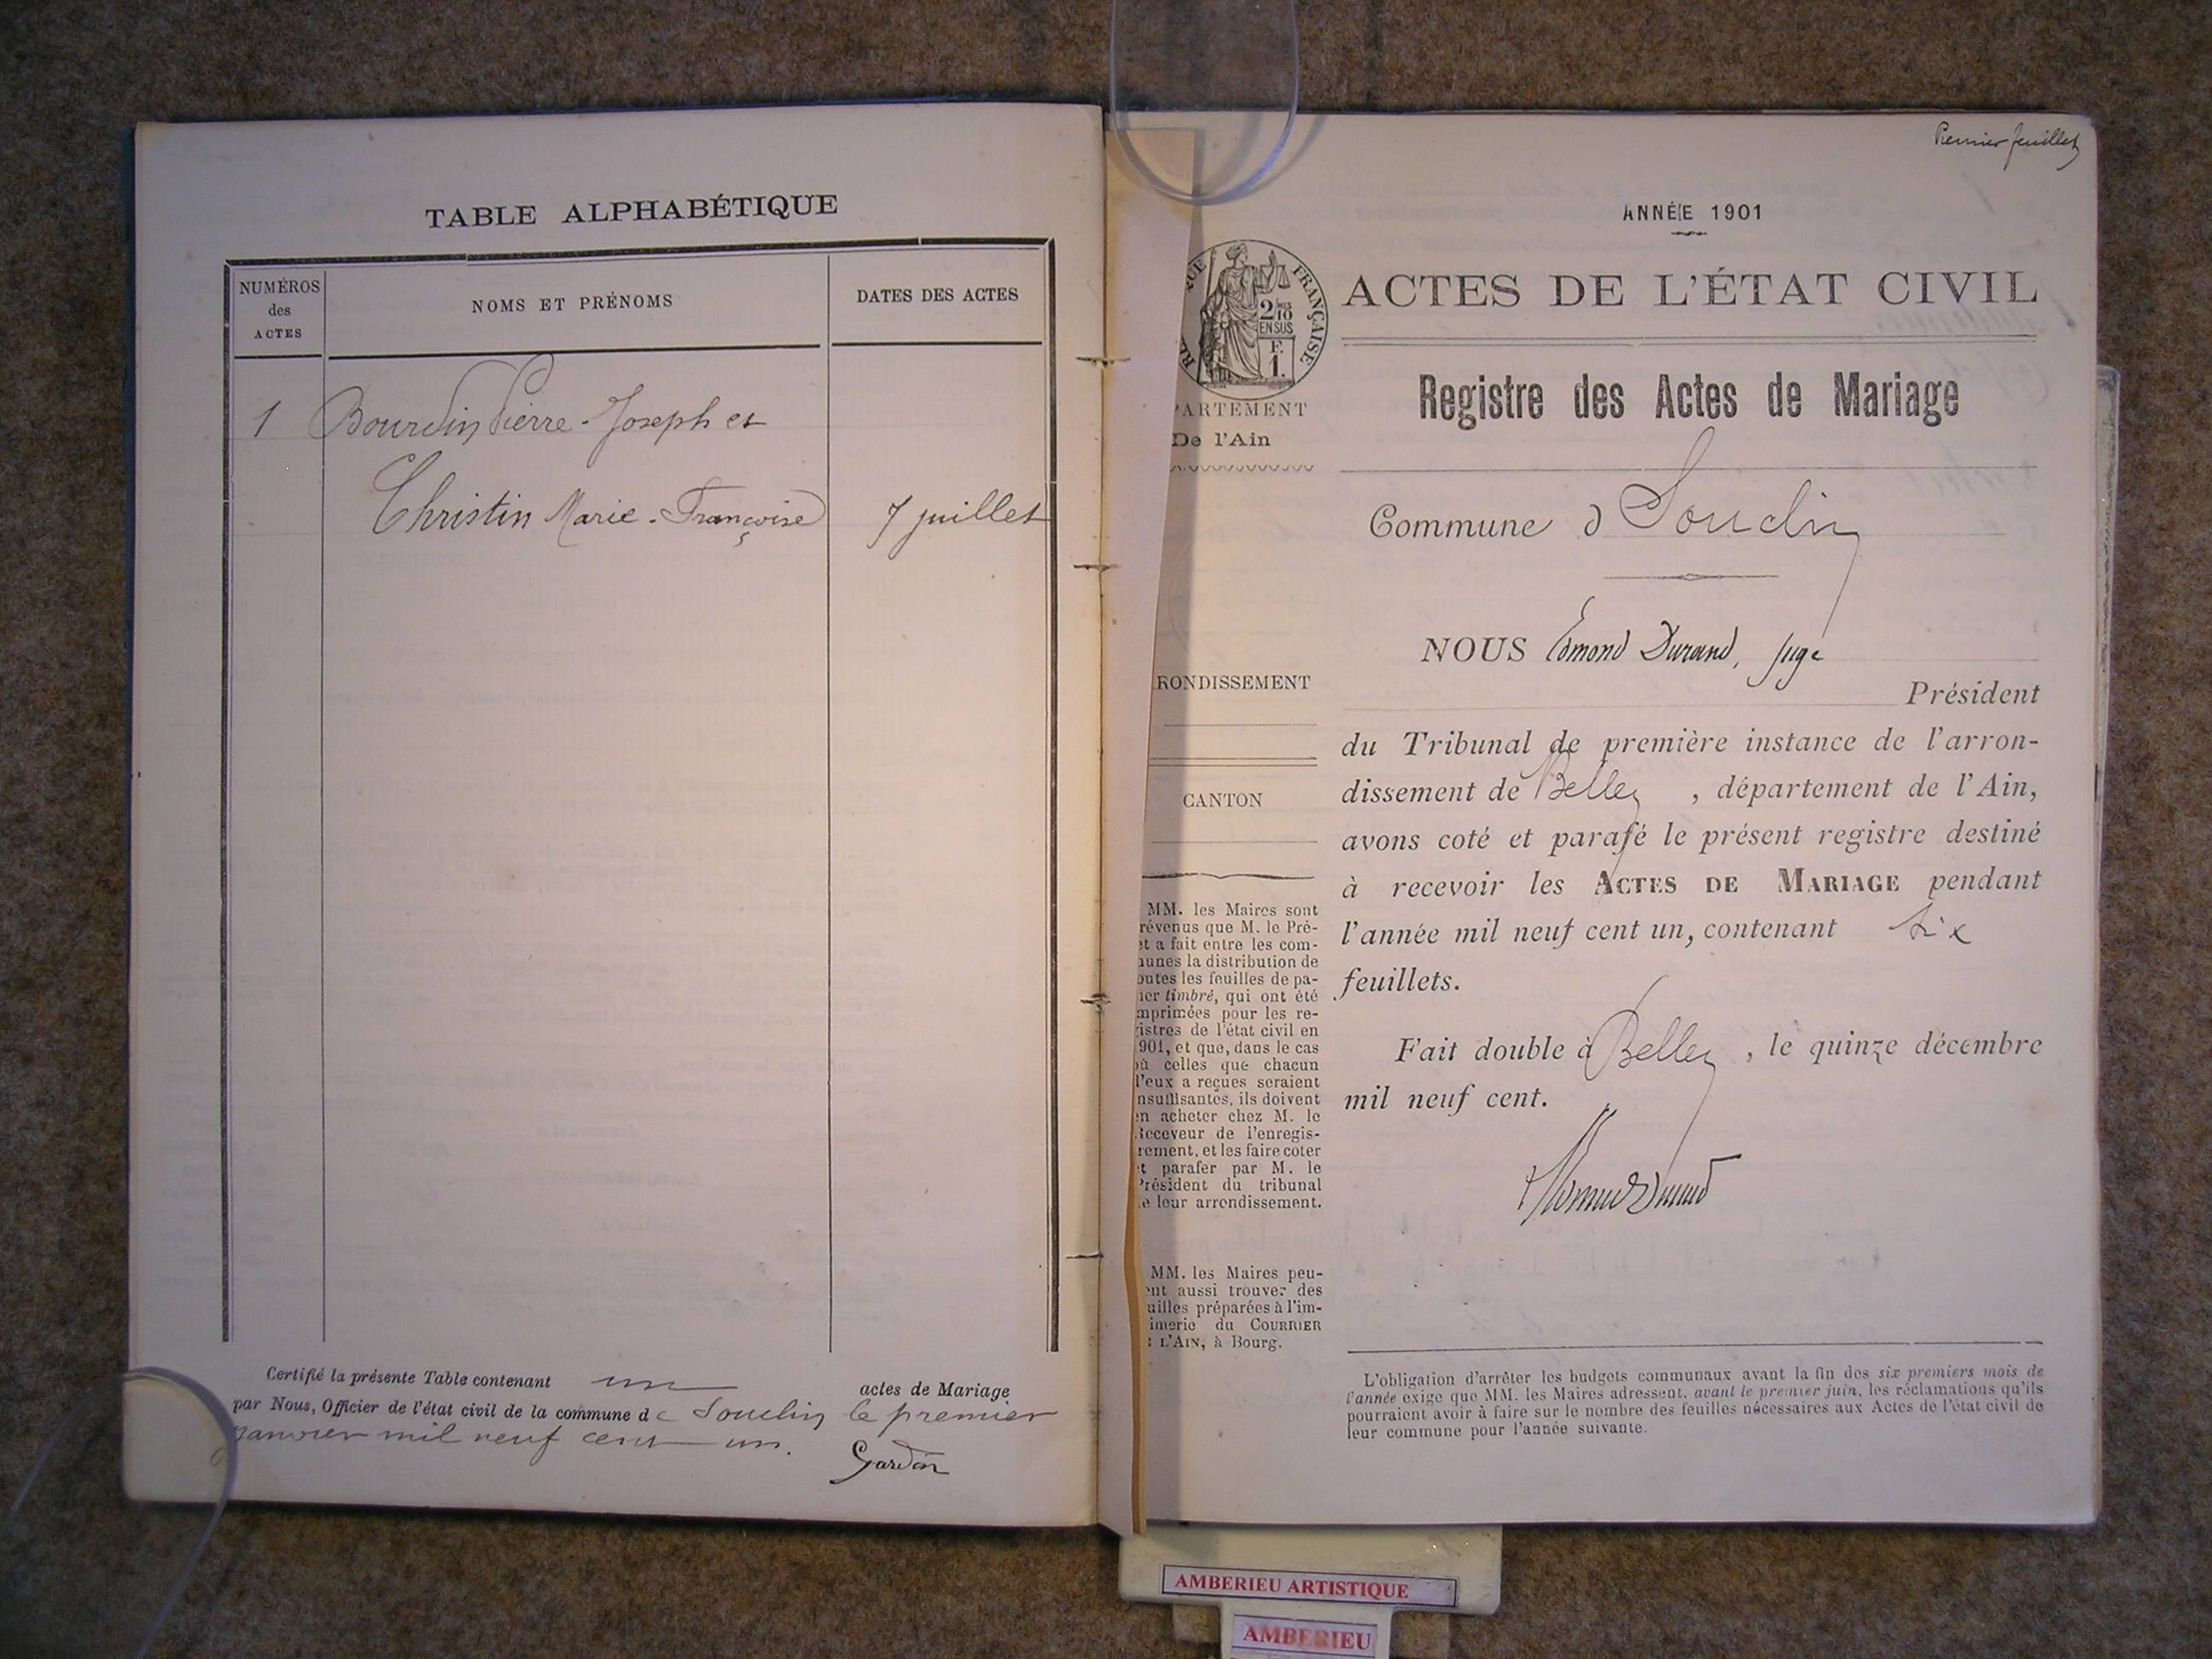 TABLE ALPHABÉTIQUE
NUMÉROS
des
ACTES
NOMS ET PRÉNOMS
DATES DES ACTES
1 Bourdin Pierre-Joseph et
Christin Marie-Françoise 7 juillet
Certifié la présente Table contenant un actes de Mariage
par Nous, Officier de l'état civil de la commune de Souclin le premier
janvier mil neuf cent un.
Gardon
Premier feuillet
ANNÉE 1901
FRANÇAISE
2/10
EN SUS
F.
1.
PARTEMENT
De l'Ain
RONDISSEMENT
CANTON
MM. les Maires sont
révenus que M. le Pré-
et a fait entre les com-
munes la distribution de
outes les feuilles de pa-
ier timbré, qui ont été
mprimées pour les re-
istres de l'état civil en
901, et que, dans le cas
où celles que chacun
d'eux a reçues seraient
nsuffisantes, ils doivent
en acheter chez M. le
Receveur de l'enregis-
rement, et les faire coter
et parafer par M. le
Président du tribunal
de leur arrondissement.
MM. les Maires peu-
ent aussi trouver des
uilles préparées à l'im-
imerie du COURRIER
: L'AIN, à Bourg.
ACTES DE L'ÉTAT CIVIL
Registre des Actes de Mariage
Commune d Souclin
NOUS Edmond Durand, juge
Président
du Tribunal de première instance de l'arron-
dissement de Belley, département de l'Ain,
avons coté et parafé le présent registre destiné
à recevoir les ACTES DE MARIAGE pendant
l'année mil neuf cent un, contenant six
feuillets.
Fait double à Belley, le quinze décembre
mil neuf cent.
L'obligation d'arrêter les budgets communaux avant la fin des six premiers mois de
l'année exige que MM. les Maires adressent, avant le premier juin, les réclamations qu'ils
pourraient avoir à faire sur le nombre des feuilles nécessaires aux Actes de l'état civil de
leur commune pour l'année suivante.
AMBERIEU ARTISTIQUE
AMBERIEU